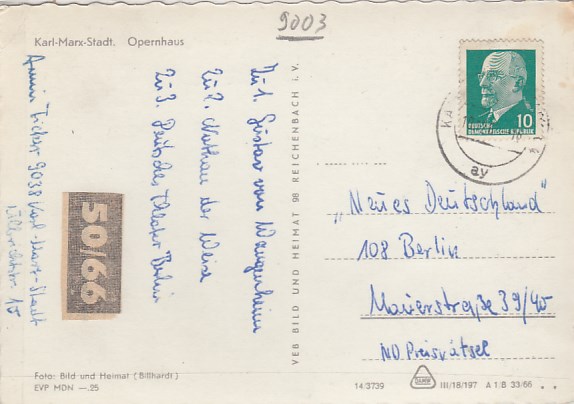 9003
Karl-Marx-Stadt, Opernhaus
Zu 1. Gustav von Wangenheim
Zu 2. Nathan der Weise
Zu 3. Deutsches Theater Berlin
Armin 9038 Karl-Marx-Stadt
15
50/66
Foto: Bild und Heimat (Billhardt)
EVP MDN —.25
VEB BILD UND HEIMAT 98 REICHENBACH i. V.
10
DEUTSCHE
DEMOKRATISCHE REPUBLIK
KA
ay
„Neues Deutschland"
108 Berlin
Mauerstraße 39/40
ND Preisrätsel
14/3739
III/18/197 A 1/B 33/66